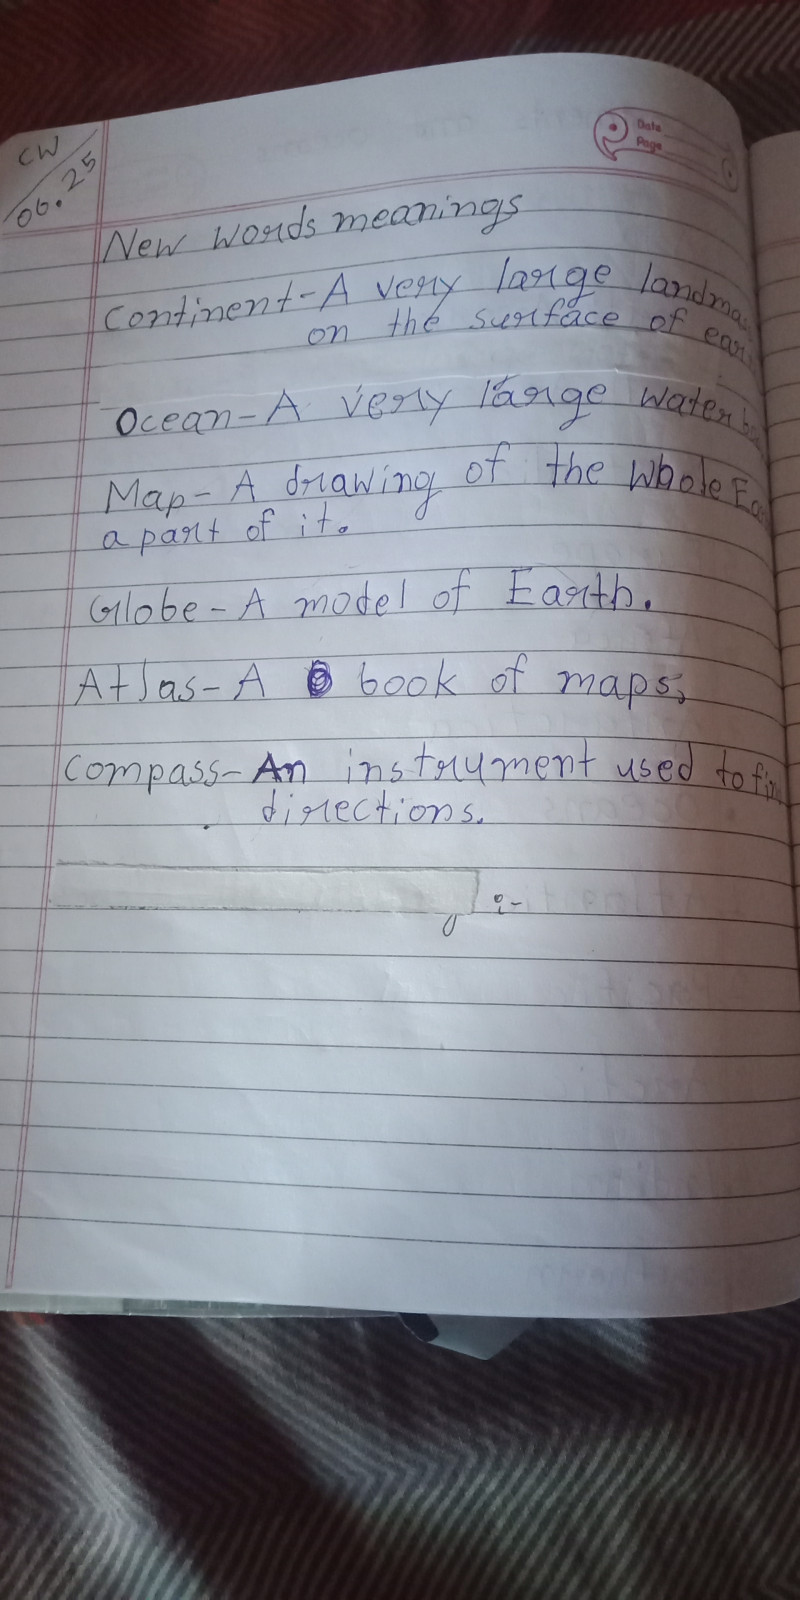 CW
06.25
Date
Page
New words meanings
Continent - A very large
on the surface of
Ocean - A very large water
Map - A drawing of the whole
a part of it.
Globe - A model of Earth.
Atlas - A book of maps,
Compass - An instrument used to
directions.
:-